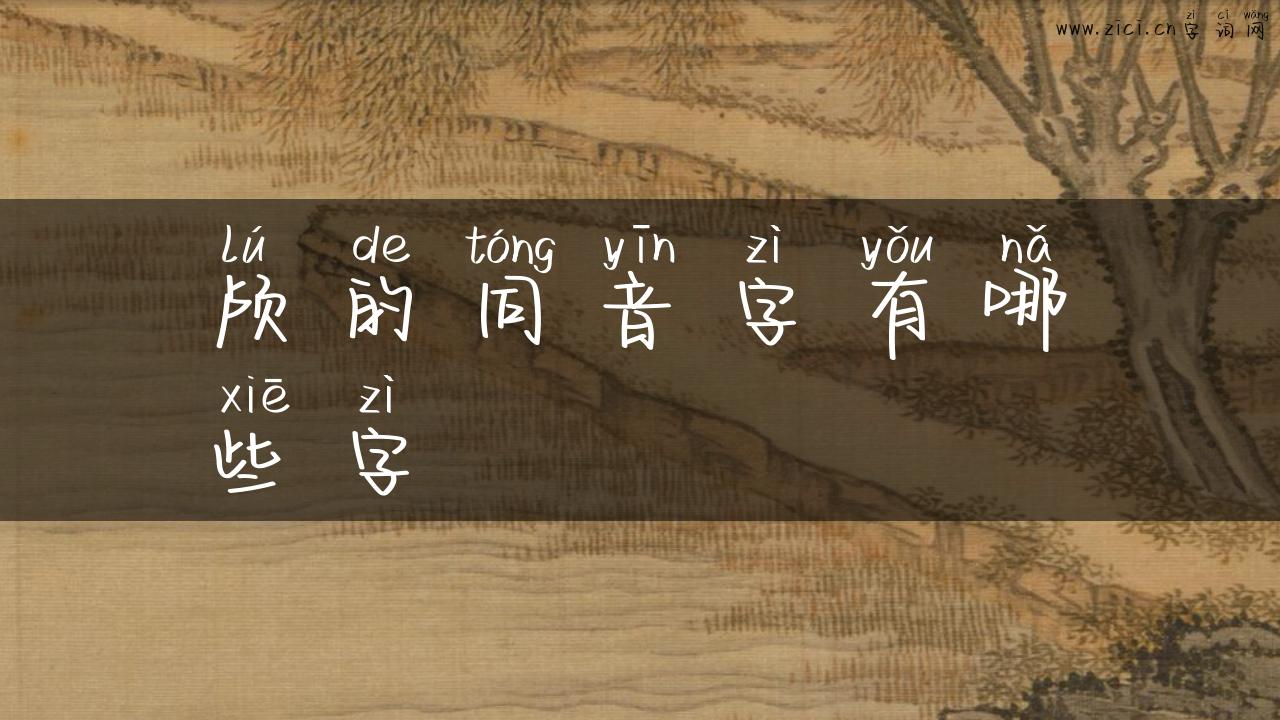 zì cí wǎng
www.zici.cn字词网
lú de tóng yīn zì yǒu nǎ
颅的同音字有哪
xiē zì
些字